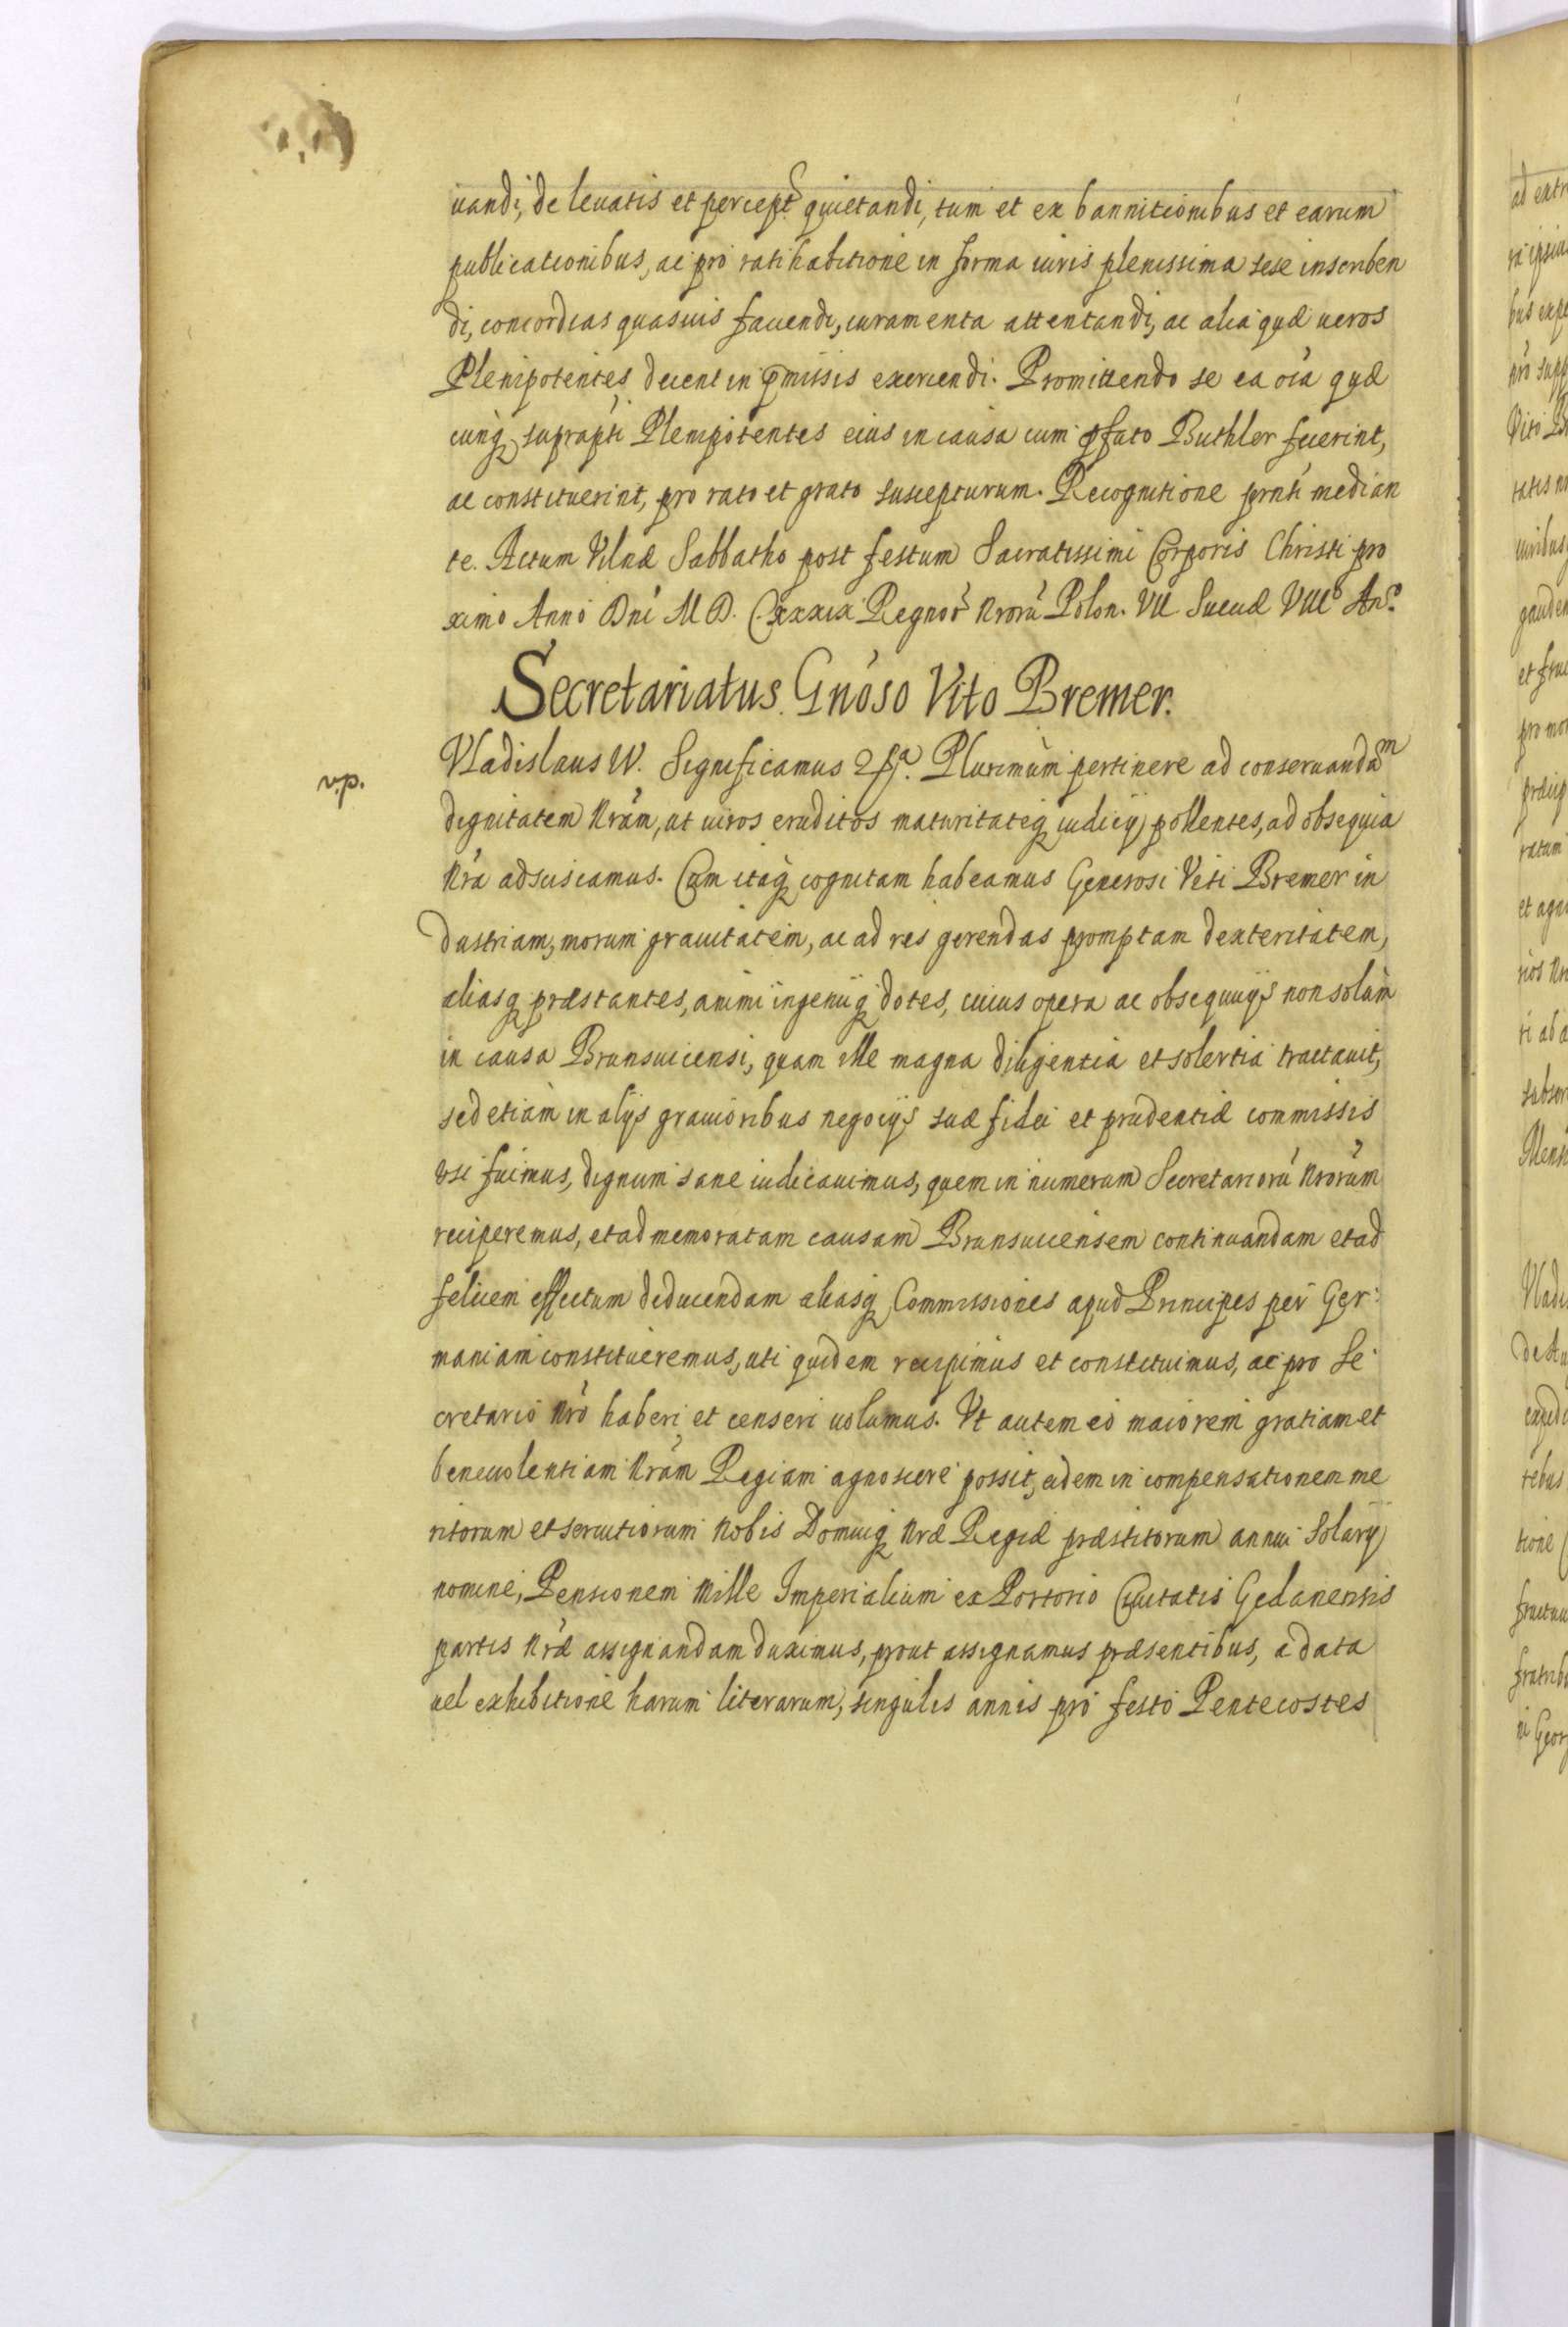 uandi, de leuatis et percept. quietandi, tum et ex bannitionibus et earum
publicationibus, ac pro ratihabitione in forma iuris plenissima sese inscriben
di, concordias quasuis faciendi, iuramenta attentandi, ac alia quæ ueros
Plenipotentes decent in p̃missis exercendi. Promittendo se ea oı̃a quæ
cunq̨ suprapti Plenipotentes eius in causa cum p̃fato Buthler fecerint,
ac constituerint, pro rato et grato suscepturum. Recognitione prnti median
te. Actum Vilnæ Sabbatho post festum Sacratissimi Corporis Christi pro
ximo Anno Dni M D. CXXXIX Regnor̃ Nrorũ Polon. VII Sueciæ VIIIº Anº.
Secretariatus Gnoso Vito Bremer.
v.p.
Vladislaus IV. Significamus Plurimùm pertinere ad conseruandam
dignitatem Nram, ut uiros eruditos maturitateq̨ iudicij pollentes, ad obsequia
Nra adsciscamus. Cum itaq̨ cognitam habeamus Generosi Viti Bremer in
dustriam, morum grauitatem, ac ad res gerendas promptam dexteritatem,
aliasq̨ præstantes, animi ingenijq̨ dotes, cuius opera ac obsequijs non solùm
in causa Brunsuicensi, quam ille magna diligentia et solertia tractauit,
sed etiàm in alijs grauioribus negocijs suæ fidei et prudentiæ commissis
vsi fuimus, dignum sane iudicauimus, quem in numerum Secretariorũ Nrorum
reciperemus, et ad memoratam causam Brunsuicensem continuandam et ad
felicem effectum deducendam aliasq̨ Commissiones apud Principes per Ger:
maniam constitueremus, uti quidem recipimus et constituimus, ac pro Se
cretario Nro haberi et censeri uolumus. Vt autem eò maiorem gratiam et
beneuolentiam Nram Regiam agnoscere possit, eidem in compensationem me
ritorum et seruitiorum Nobis Domuiq̨ Nræ Regiæ præstitorum annui Solarij
nomine, Pensionem Mille Imperialium ex Portorio Ciuitatis Gedanensis
partis Nræ assignandam duximus, prout assignamus præsentibus, à data
uel exhibitione harum literarum, singulis annis pro festo Pentecostes